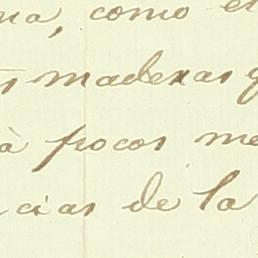 na, como e
s maderas q
à pocos me
cias de la